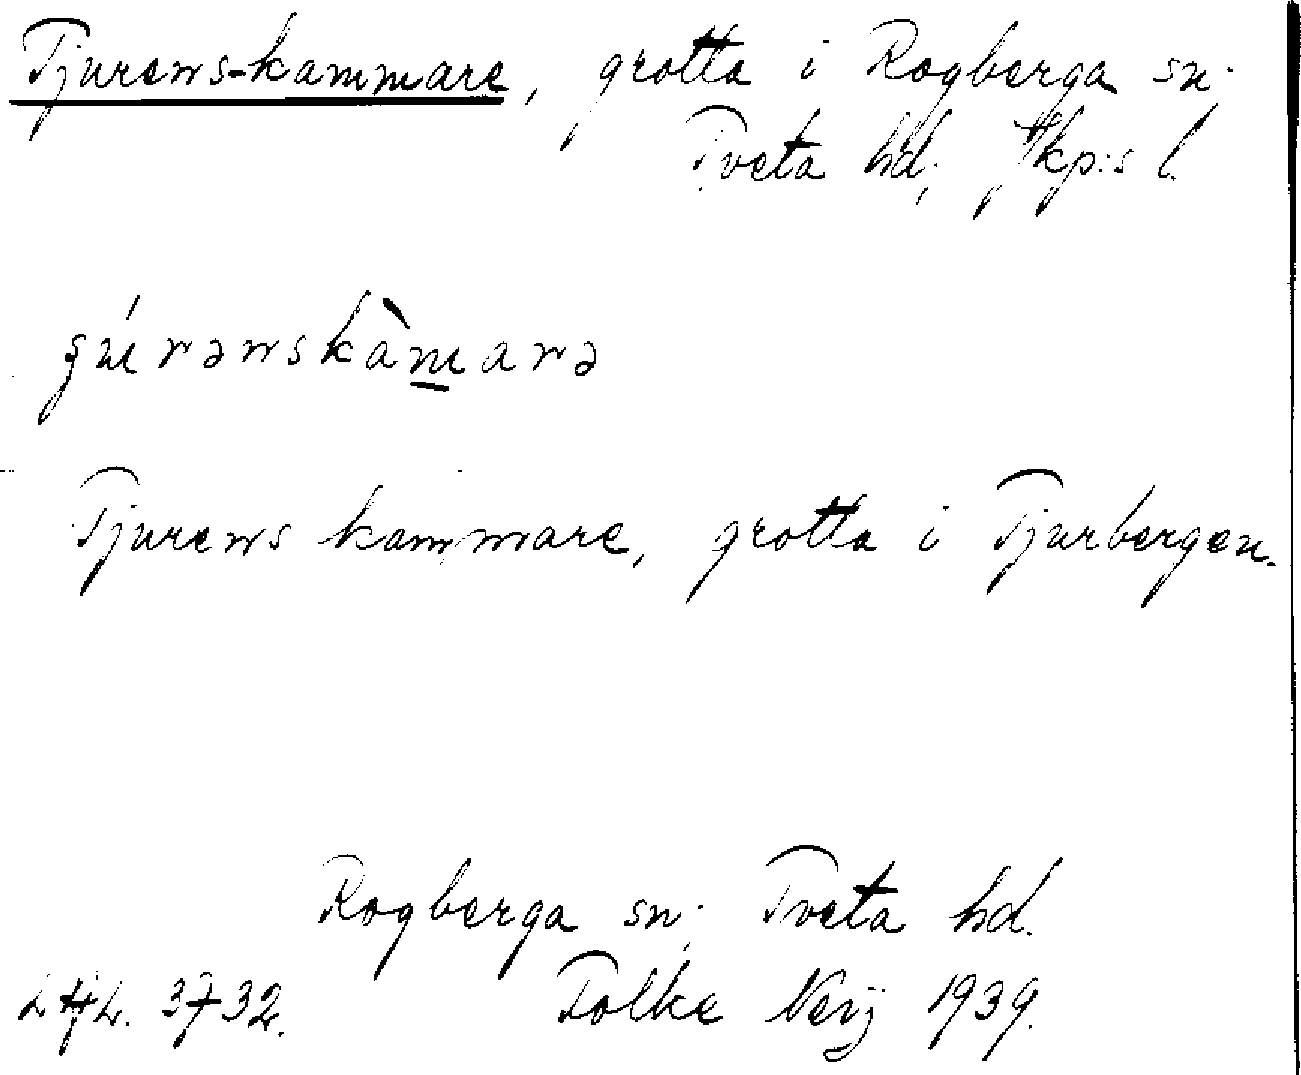 Tjurens-kammare, grotta i Rogberga sn.
Tveta hd; Jkp:s l.
Tjurens kammare, grotta i Tjurbergen.
Rogberga sn; Tveta hd.
3732. Folke Neij 1939.